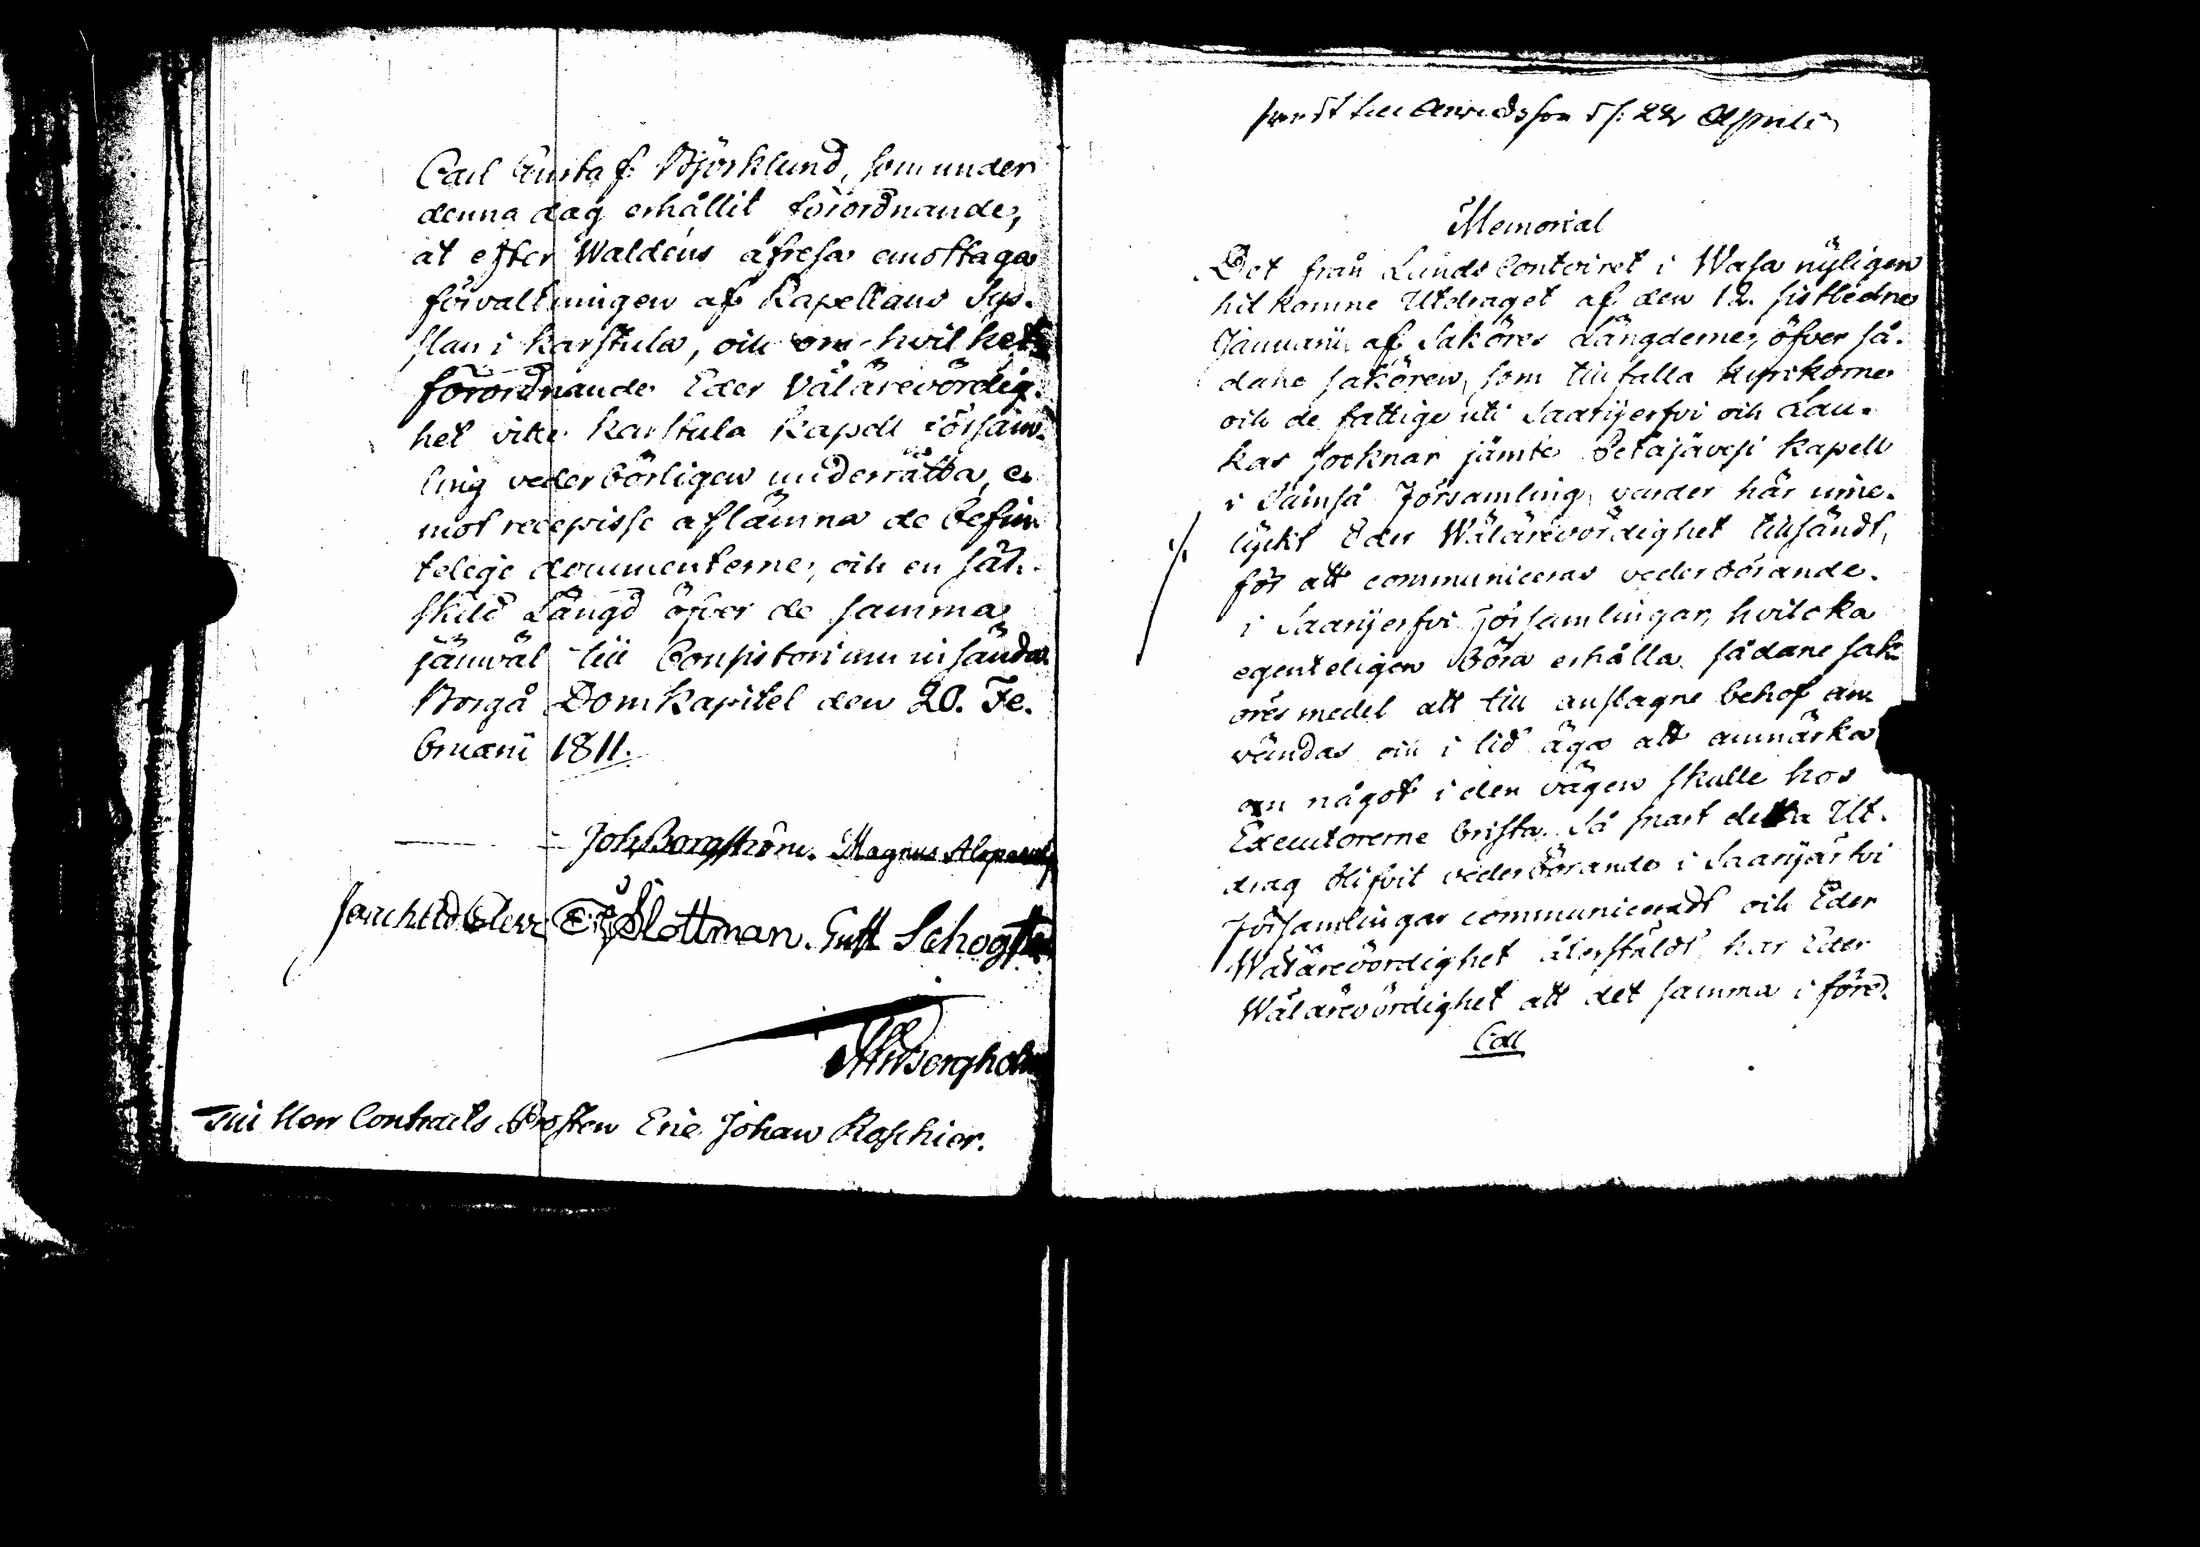 Carl Gustaf Björklund, som under
denna dag erhållit förordnande,
at efter Waldéns afresa emottaga
förvaltningen af Kapellans Sys-
slan i Karstula, och om hvilket
förordnande Eder Välärevördig-
het ville Karstula Kapell försam-
ling vederbörligen underrätta, e-
mot recepisse aflämna de befin-
telige documenterne, och en sär-
skild Längd öfver de samma
jämväl till Consistorium insända.
Borgå Domkapitel den 20. Fe-
bruarii 1811.
Joh. Borgström. Magnus Alopaeus
E. Slottman. Gust
Bergholm
Till Herr Contracts Prosten Eric Johan Roschier.
till Arvidsson 22 Aprilis
Memorial
Det från Lands Contoiret i Wasa nyligen
hitkomne Utdraget af den 12. sistledne
Januarii af Saköres Längderne, öfver så-
dane sakören, som tillfalla kyrkorne
och de fattige uti Saarijerfvi och Lau-
kas socknar jämte Petäjävesi Kapell
i Jämsä Församling, varder här inne-
lyckt Eder Wälärevördighet tillsändt,
för att communiceras vederbörande
i Saarijerfvi församlingar, hvilcka
egenteligen böra erhålla sådane sak-
öres medel att till anslagne behof an-
vändas och i tid äga att anmärka
om något i den vägen skulle hos
Executorerne brista. Så snart detta Ut-
drag blifvit vederbörande i Saarijärfvi
församlingar communiceradt och Eder
Wälärevördighet återstäldt, har Eder
Wälärevördighet att det samma i före-